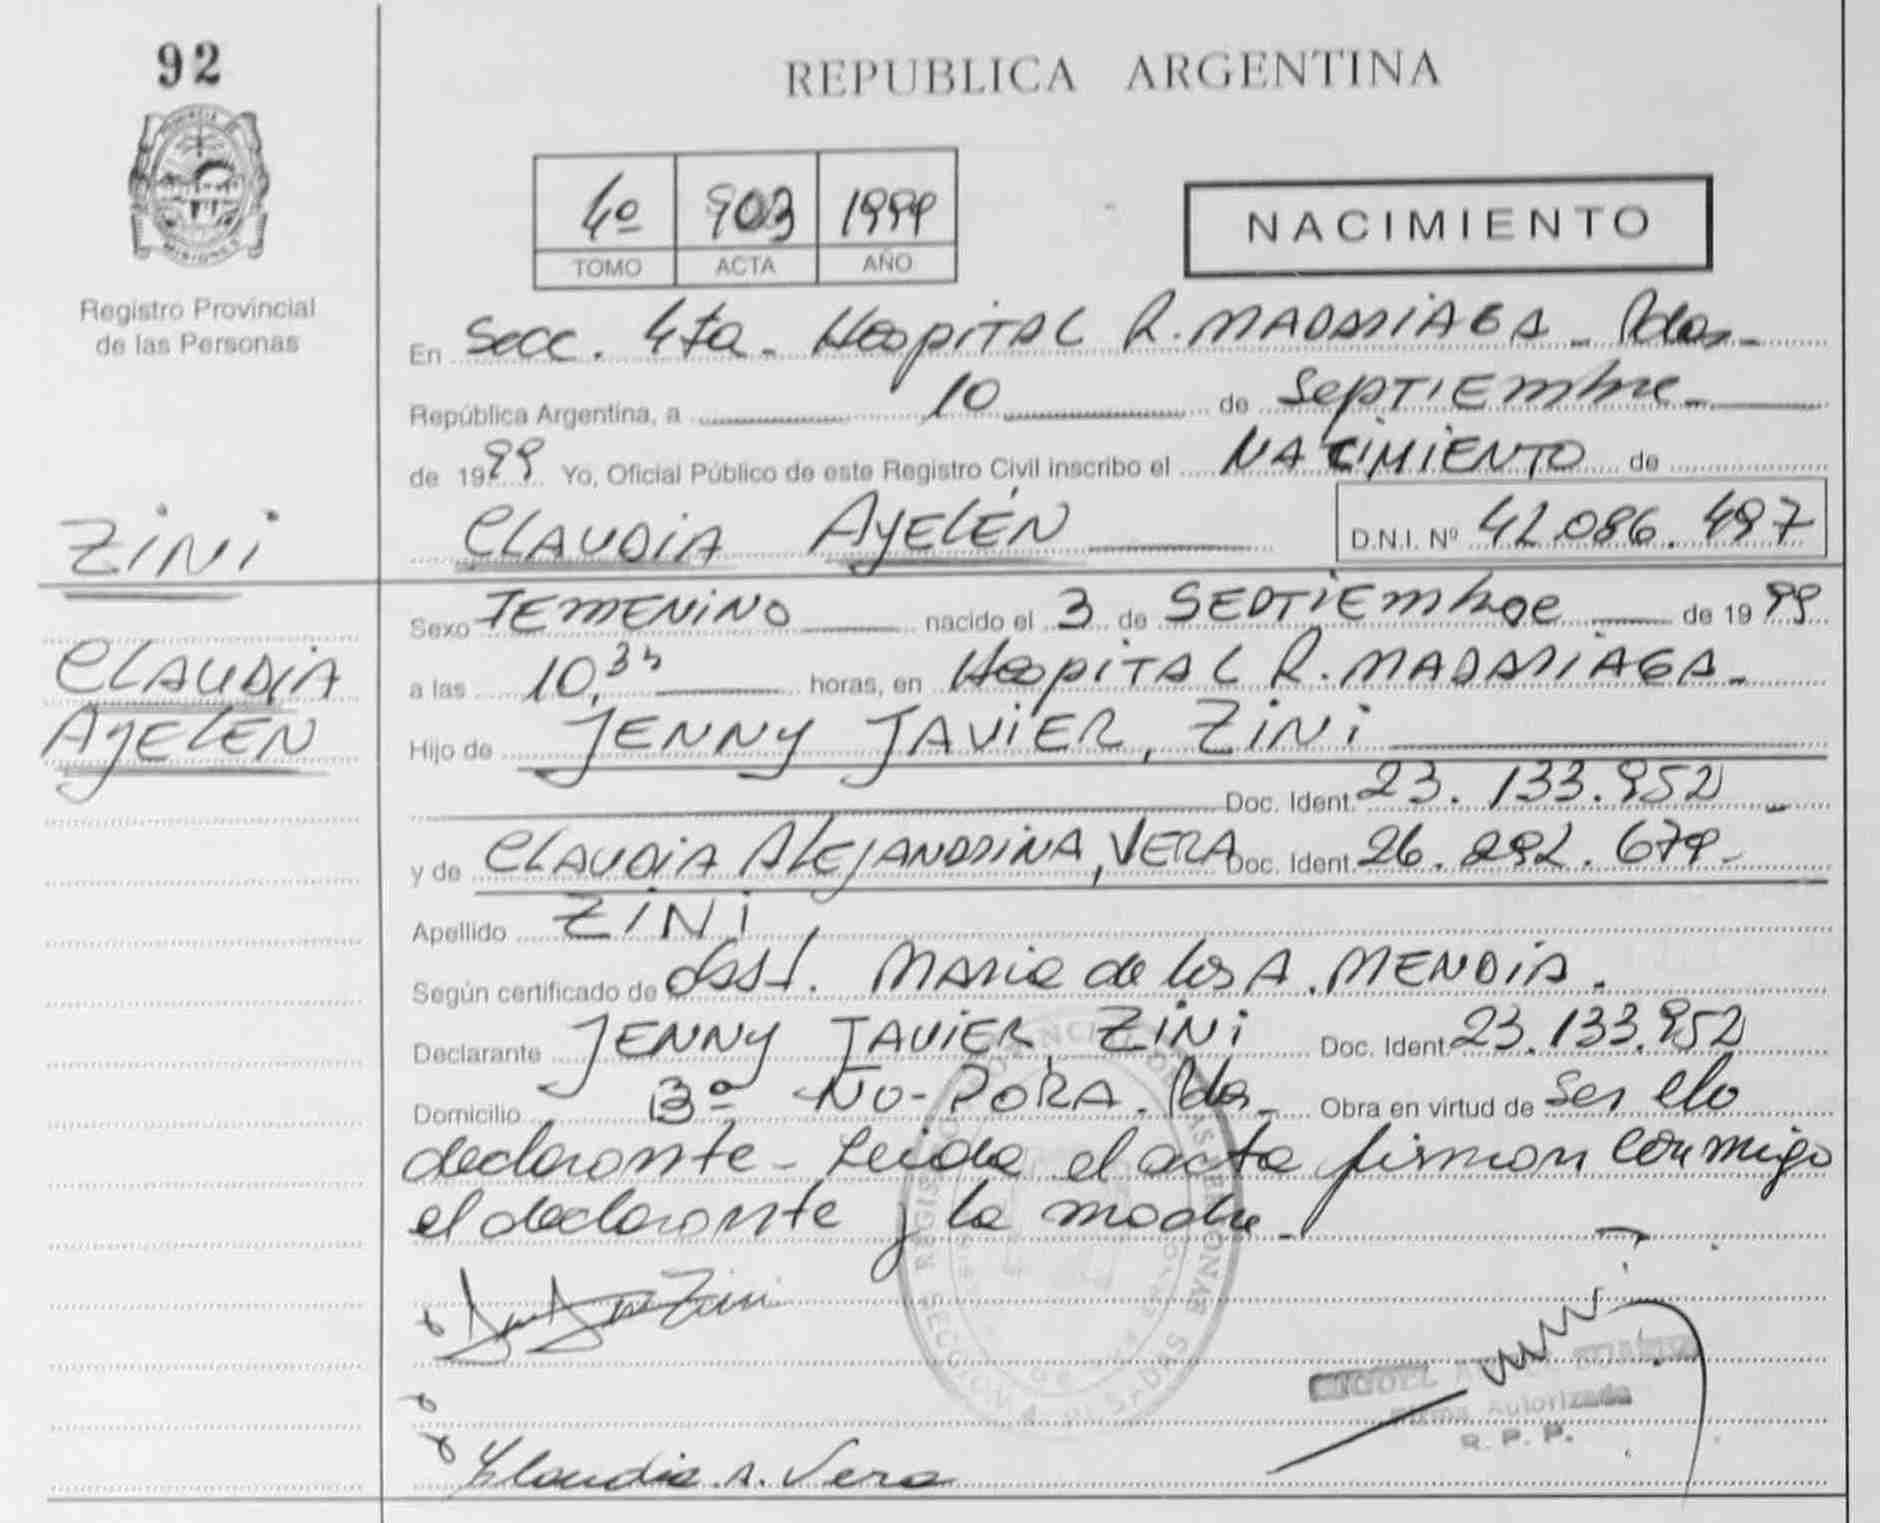 92
REPUBLICA ARGENTINA
4º 903 1999
TOMO ACTA AÑO
NACIMIENTO
Registro Provincial
de las Personas
En Secc. 4ta - Hospital R. MADARIAGA - Pdas -
República Argentina, a 10 de Septiembre -
de 1999 Yo, Oficial Público de este Registro Civil inscribo el NACIMIENTO de
CLAUDIA AYELÉN
D.N.I. Nº 42.086.497
ZiNi
CLAUDIA
AYELEN
Sexo FEMENiNO nacido el 3 de SEPTiEmbre de 1999
a las 10, horas, en HospiTAL R. MADARiAGA -
Hijo de JENNY JAViER, ZiNi
Doc. Ident. 23.133.952 -
y de CLAUDiA ALEJANDRiNA, VERA Doc. Ident. 26.292.679 -
Apellido ZiNi
Según certificado de Obst. Maria de los A. MENDiA.
Declarante JENNY JAViER, ZiNi Doc. Ident. 23.133.952
Domicilio Bº ÑU-PORA. Pdas - Obra en virtud de ser elo
declarante - Leida el acta firman conmigo
el declarante y la madre -
Zini
Claudia A. Vera
Firma Autorizada
R. P. P.